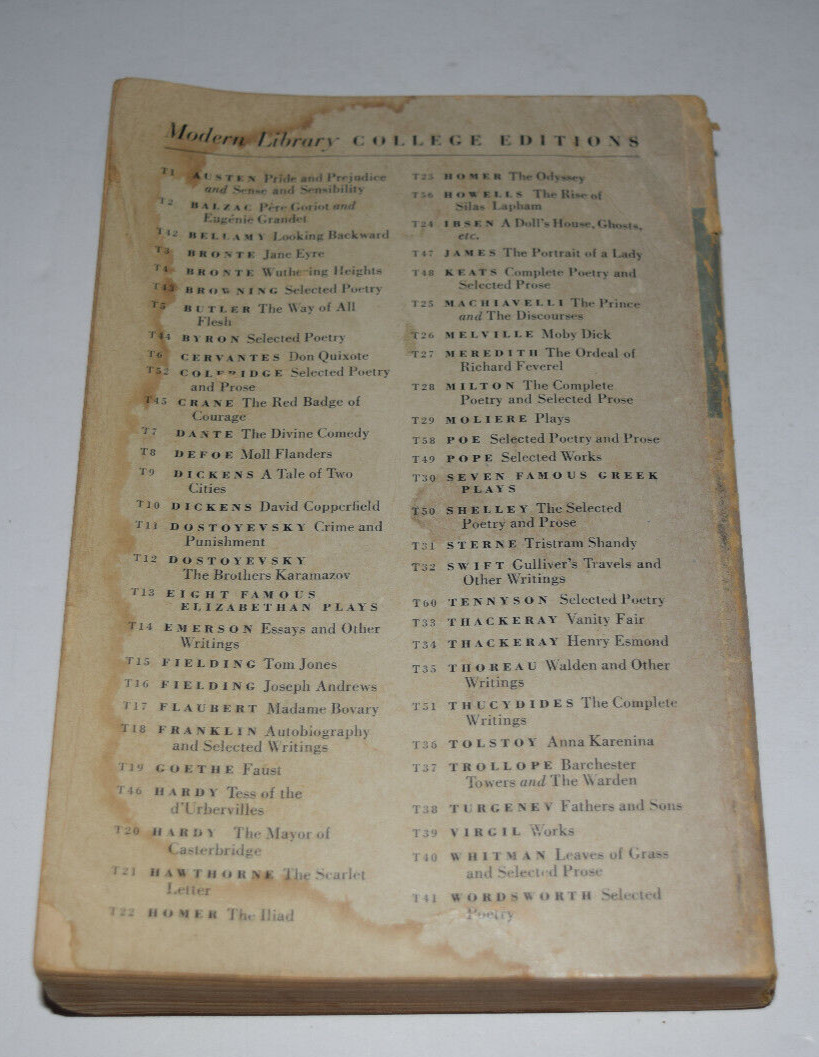 Modern Library COLLEGE EDITIONS
T1 AUSTEN Pride and Prejudice
and Sense and Sensibility
T2 BALZAC Père Goriot and
Eugénie Grandet
T42 BELLAMY Looking Backward
T3 BRONTE Jane Eyre
T4 BRONTE Wuthering Heights
T43 BROWNING Selected Poetry
T5 BUTLER The Way of All
Flesh
T44 BYRON Selected Poetry
T6 CERVANTES Don Quixote
T52 COLERIDGE Selected Poetry
and Prose
T45 CRANE The Red Badge of
Courage
T7 DANTE The Divine Comedy
T8 DEFOE Moll Flanders
T9 DICKENS A Tale of Two
Cities
T10 DICKENS David Copperfield
T11 DOSTOYEVSKY Crime and
Punishment
T12 DOSTOYEVSKY
The Brothers Karamazov
T13 EIGHT FAMOUS
ELIZABETHAN PLAYS
T14 EMERSON Essays and Other
Writings
T15 FIELDING Tom Jones
T16 FIELDING Joseph Andrews
T17 FLAUBERT Madame Bovary
T18 FRANKLIN Autobiography
and Selected Writings
T19 GOETHE Faust
T46 HARDY Tess of the
d'Urbervilles
T20 HARDY The Mayor of
Casterbridge
T21 HAWTHORNE The Scarlet
Letter
T22 HOMER The Iliad
T23 HOMER The Odyssey
T56 HOWELLS The Rise of
Silas Lapham
T24 IBSEN A Doll's House, Ghosts,
etc.
T47 JAMES The Portrait of a Lady
T48 KEATS Complete Poetry and
Selected Prose
T25 MACHIAVELLI The Prince
and The Discourses
T26 MELVILLE Moby Dick
T27 MEREDITH The Ordeal of
Richard Feverel
T28 MILTON The Complete
Poetry and Selected Prose
T29 MOLIERE Plays
T58 POE Selected Poetry and Prose
T49 POPE Selected Works
T30 SEVEN FAMOUS GREEK
PLAYS
T50 SHELLEY The Selected
Poetry and Prose
T31 STERNE Tristram Shandy
T32 SWIFT Gulliver's Travels and
Other Writings
T60 TENNYSON Selected Poetry
T33 THACKERAY Vanity Fair
T34 THACKERAY Henry Esmond
T35 THOREAU Walden and Other
Writings
T51 THUCYDIDES The Complete
Writings
T36 TOLSTOY Anna Karenina
T37 TROLLOPE Barchester
Towers and The Warden
T38 TURGENEV Fathers and Sons
T39 VIRGIL Works
T40 WHITMAN Leaves of Grass
and Selected Prose
T41 WORDSWORTH Selected
Poetry